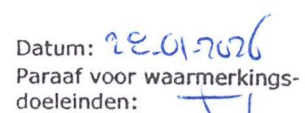 Datum: 28-01-2026
Paraaf voor waarmerkings-
doeleinden: